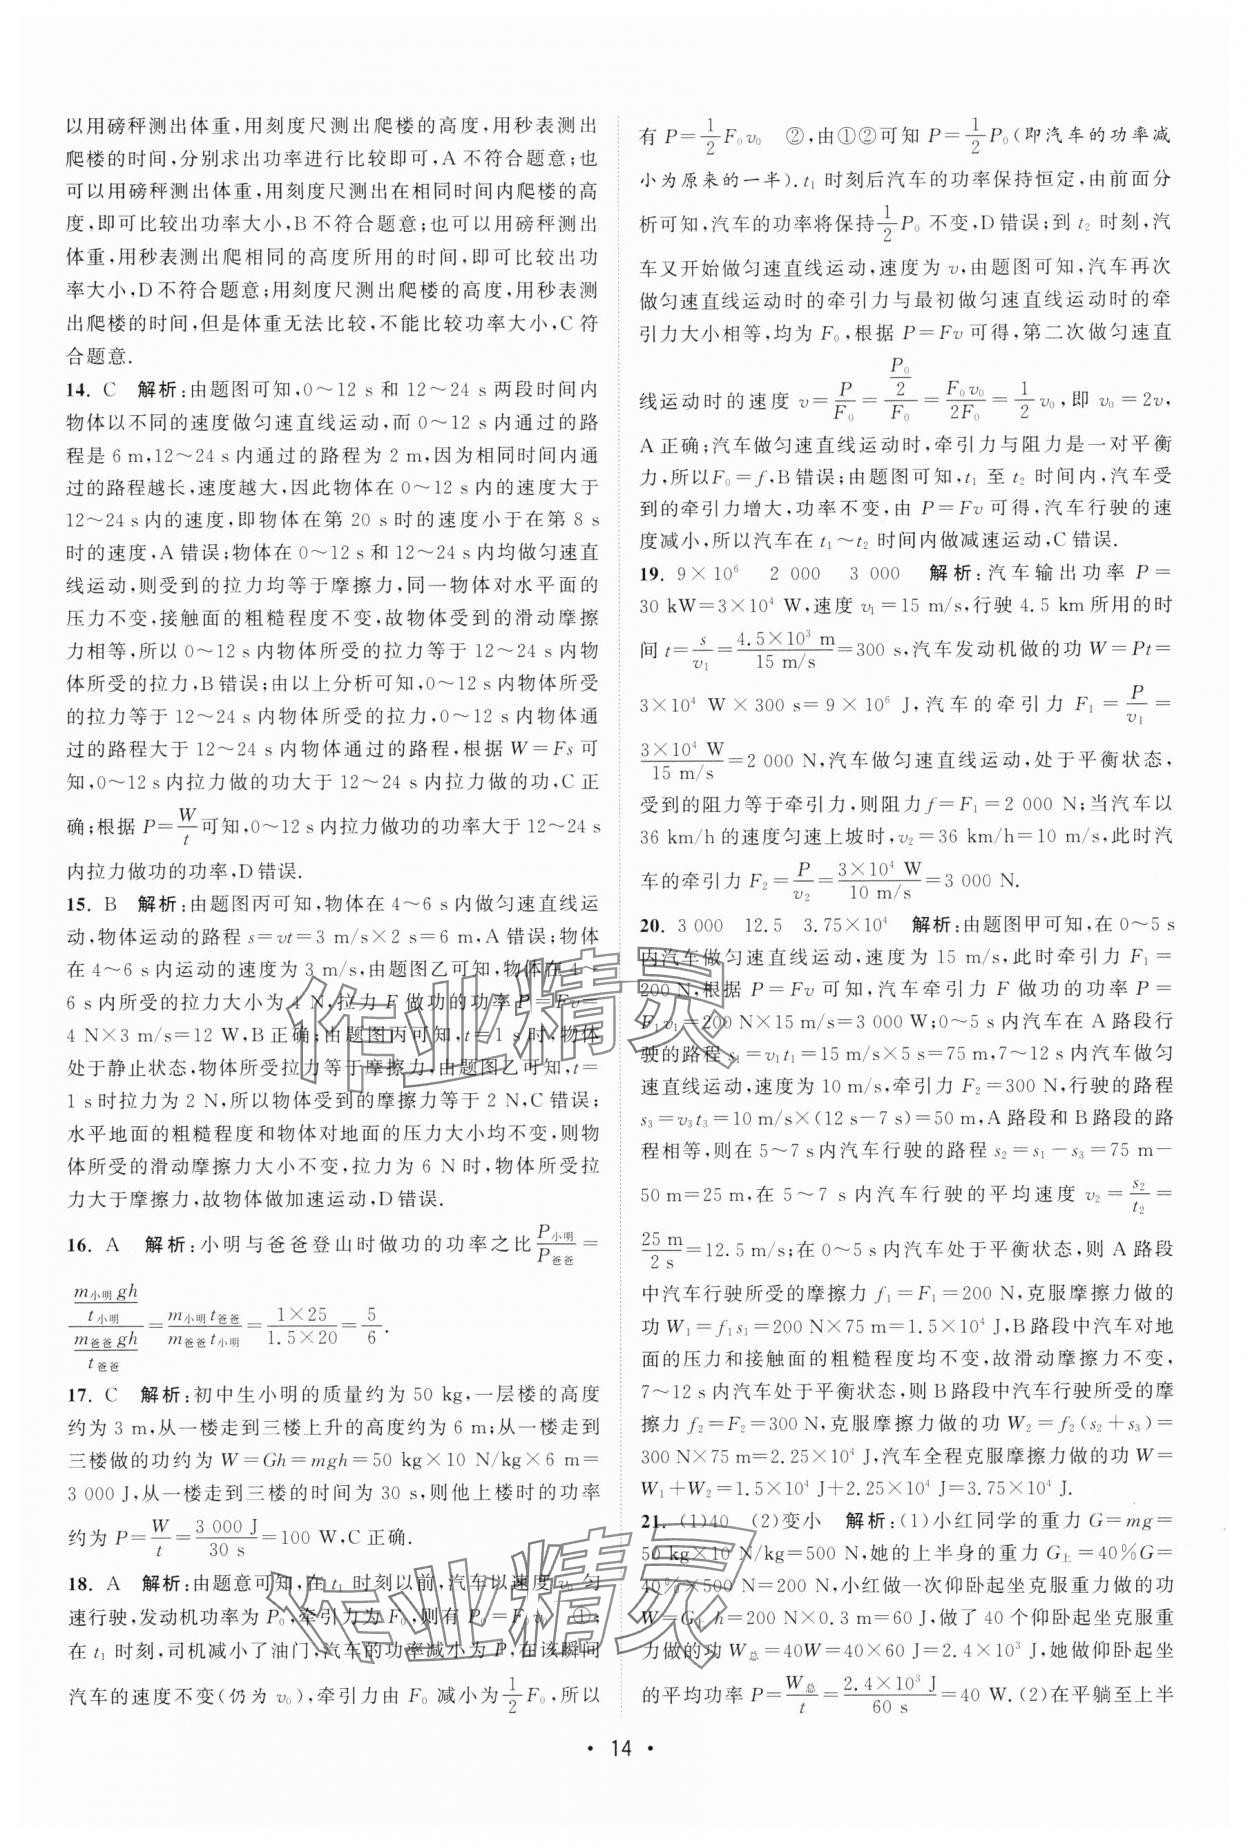 以用磅秤测出体重,用刻度尺测出爬楼的高度,用秒表测出
爬楼的时间,分别求出功率进行比较即可,A 不符合题意;也
可以用磅秤测出体重,用刻度尺测出在相同时间内爬楼的高
度,即可比较出功率大小,B 不符合题意;也可以用磅秤测出
体重,用秒表测出爬相同的高度所用的时间,即可比较出功
率大小,D 不符合题意;用刻度尺测出爬楼的高度,用秒表测
出爬楼的时间,但是体重无法比较,不能比较功率大小,C 符
合题意.
14. C 解析:由题图可知,0～12 s 和 12～24 s 两段时间内
物体以不同的速度做匀速直线运动,而 0～12 s 内通过的路
程是 6 m,12～24 s 内通过的路程为 2 m,因为相同时间内通
过的路程越长,速度越大,因此物体在 0～12 s 内的速度大于
12～24 s 内的速度,即物体在第 20 s 时的速度小于在第 8 s
时的速度,A 错误;物体在 0～12 s 和 12～24 s 内均做匀速直
线运动,则受到的拉力均等于摩擦力,同一物体对水平面的
压力不变,接触面的粗糙程度不变,故物体受到的滑动摩擦
力相等,所以 0～12 s 内物体所受的拉力等于 12～24 s 内物
体所受的拉力,B 错误;由以上分析可知,0～12 s 内物体所受
的拉力等于 12～24 s 内物体所受的拉力,0～12 s 内物体通
过的路程大于 12～24 s 内物体通过的路程,根据 W=Fs 可
知,0～12 s 内拉力做的功大于 12～24 s 内拉力做的功,C 正
确;根据 P=W/t 可知,0～12 s 内拉力做功的功率大于 12～24 s
内拉力做功的功率,D 错误.
15. B 解析:由题图丙可知,物体在 4～6 s 内做匀速直线运
动,物体运动的路程 s=vt=3 m/s×2 s=6 m,A 错误;物体
在 4～6 s 内运动的速度为 3 m/s,由题图乙可知,物体在 4～
6 s 内所受的拉力大小为 4 N,拉力 F 做功的功率 P=Fv=
4 N×3 m/s=12 W,B 正确;由题图丙可知,t=1 s 时,物体
处于静止状态,物体所受拉力等于摩擦力,由题图乙可知,t=
1 s 时拉力为 2 N,所以物体受到的摩擦力等于 2 N,C 错误;
水平地面的粗糙程度和物体对地面的压力大小均不变,则物
体所受的滑动摩擦力大小不变,拉力为 6 N 时,物体所受拉
力大于摩擦力,故物体做加速运动,D 错误.
16. A 解析:小明与爸爸登山时做功的功率之比 P小明/P爸爸 =
(m小明gh/t小明)/(m爸爸gh/t爸爸) = m小明t爸爸/m爸爸t小明 = 1×25/1.5×20 = 5/6.
17. C 解析:初中生小明的质量约为 50 kg,一层楼的高度
约为 3 m,从一楼走到三楼上升的高度约为 6 m;从一楼走到
三楼做的功约为 W=Gh=mgh=50 kg×10 N/kg×6 m=
3 000 J,从一楼走到三楼的时间为 30 s,则他上楼时的功率
约为 P=W/t=3 000 J/30 s=100 W,C 正确.
18. A 解析:由题意可知,在 t₁ 时刻以前,汽车以速度 v₀ 匀
速行驶,发动机功率为 P₀,牵引力为 F₀,则有 P₀=F₀v₀ ①;
在 t₁ 时刻,司机减小了油门,汽车的功率减小为 P,在该瞬间
汽车的速度不变(仍为 v₀),牵引力由 F₀ 减小为 1/2 F₀,所以
有 P=1/2 F₀v₀ ②,由①②可知 P=1/2 P₀(即汽车的功率减
小为原来的一半).t₁ 时刻后汽车的功率保持恒定,由前面分
析可知,汽车的功率将保持 1/2 P₀ 不变,D 错误;到 t₂ 时刻,汽
车又开始做匀速直线运动,速度为 v,由题图可知,汽车再次
做匀速直线运动时的牵引力与最初做匀速直线运动时的牵
引力大小相等,均为 F₀,根据 P=Fv 可得,第二次做匀速直
线运动时的速度 v=P/F₀=(P₀/2)/F₀=F₀v₀/2F₀=1/2 v₀,即 v₀=2v,
A 正确;汽车做匀速直线运动时,牵引力与阻力是一对平衡
力,所以 F₀=f,B 错误;由题图可知,t₁ 至 t₂ 时间内,汽车受
到的牵引力增大,功率不变,由 P=Fv 可得,汽车行驶的速
度减小,所以汽车在 t₁～t₂ 时间内做减速运动,C 错误.
19. 9×10⁶ 2 000 3 000 解析:汽车输出功率 P=
30 kW=3×10⁴ W,速度 v₁=15 m/s,行驶 4.5 km 所用的时
间 t=s/v₁=4.5×10³ m/15 m/s=300 s,汽车发动机做的功 W=Pt=
3×10⁴ W×300 s=9×10⁶ J,汽车的牵引力 F₁=P/v₁=
3×10⁴ W/15 m/s=2 000 N,汽车做匀速直线运动,处于平衡状态,
受到的阻力等于牵引力,则阻力 f=F₁=2 000 N;当汽车以
36 km/h 的速度匀速上坡时,v₂=36 km/h=10 m/s,此时汽
车的牵引力 F₂=P/v₂=3×10⁴ W/10 m/s=3 000 N.
20. 3 000 12.5 3.75×10⁴ 解析:由题图甲可知,在 0～5 s
内汽车做匀速直线运动,速度为 15 m/s,此时牵引力 F₁=
200 N,根据 P=Fv 可知,汽车牵引力 F 做功的功率 P=
F₁v₁=200 N×15 m/s=3 000 W;0～5 s 内汽车在 A 路段行
驶的路程 s₁=v₁t₁=15 m/s×5 s=75 m,7～12 s 内汽车做匀
速直线运动,速度为 10 m/s,牵引力 F₂=300 N,行驶的路程
s₃=v₃t₃=10 m/s×(12 s-7 s)=50 m,A 路段和 B 路段的路
程相等,则在 5～7 s 内汽车行驶的路程 s₂=s₁-s₃=75 m-
50 m=25 m,在 5～7 s 内汽车行驶的平均速度 v₂=s₂/t₂=
25 m/2 s=12.5 m/s;在 0～5 s 内汽车处于平衡状态,则 A 路段
中汽车行驶所受的摩擦力 f₁=F₁=200 N,克服摩擦力做的
功 W₁=f₁s₁=200 N×75 m=1.5×10⁴ J,B 路段中汽车对地
面的压力和接触面的粗糙程度均不变,故滑动摩擦力不变,
7～12 s 内汽车处于平衡状态,则 B 路段中汽车行驶所受的摩
擦力 f₂=F₂=300 N,克服摩擦力做的功 W₂=f₂(s₂+s₃)=
300 N×75 m=2.25×10⁴ J,汽车全程克服摩擦力做的功 W=
W₁+W₂=1.5×10⁴ J+2.25×10⁴ J=3.75×10⁴ J.
21. (1)40 (2)变小 解析:(1)小红同学的重力 G=mg=
50 kg×10 N/kg=500 N,她的上半身的重力 G上=40%G=
40%×500 N=200 N,小红做一次仰卧起坐克服重力做的功
W=G上h=200 N×0.3 m=60 J,做了 40 个仰卧起坐克服重
力做的功 W总=40W=40×60 J=2.4×10³ J,她做仰卧起坐
的平均功率 P=W总/t=2.4×10³ J/60 s=40 W.(2)在平躺至上半
• 14 •
作业精灵
作业精灵